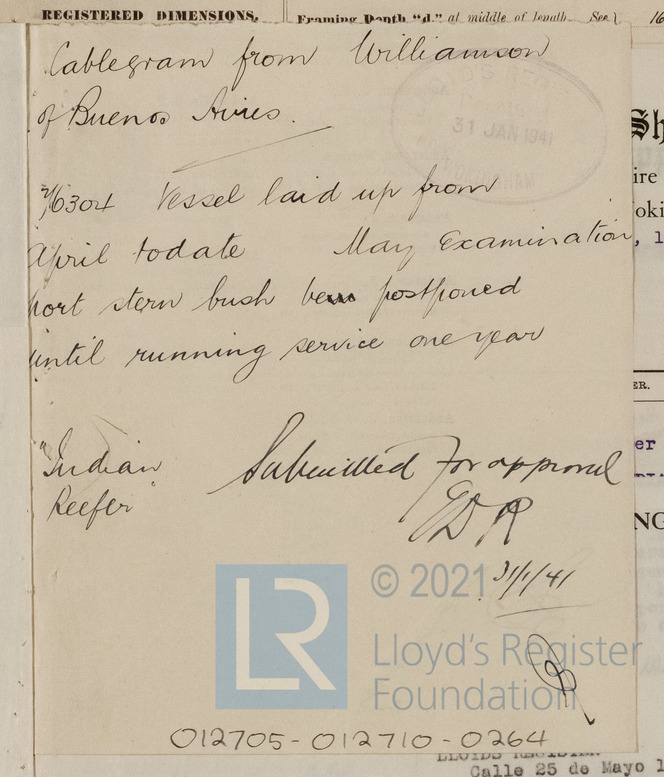 REGISTERED DIMENSIONS. Framing Depth "d." at middle of length. See 16
Cablegram from Williamson
of Buenos Aires.
31 JAN 1941
76304 Vessel laid up from
April todate May Examination
port stern bush be postponed
until running service one year
"Indian
Reefer"
Submitted for approval
31/1/41
LR © 2021
Lloyd's Register
Foundation
012705-012710-0264
Sh
ire
oki
, 1
ER.
er
NG
LLOYDS REGISTER
Calle 25 de Mayo 1